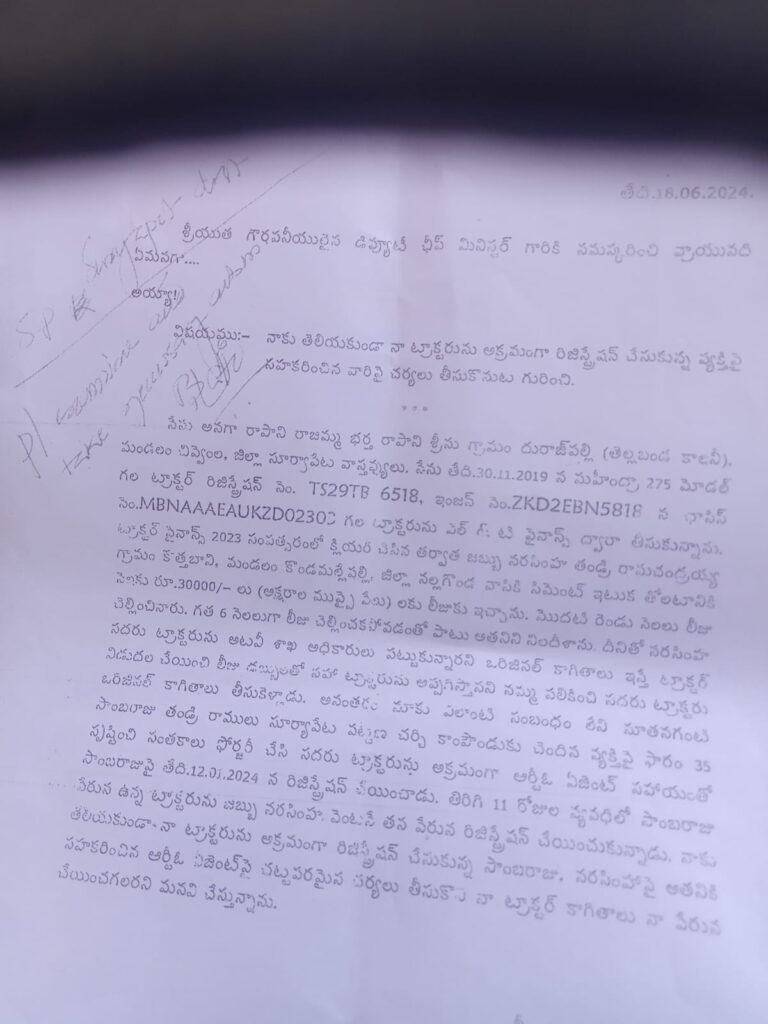 తేది.18.06.2024.
శ్రీయుత గౌరవనీయులైన డిప్యూటీ ఛీప్ మినిస్టర్ గారికి నమస్కరించి వ్రాయునది
ఏమనగా....
అయ్యా!
S.P
Pl examine and
take necessary action
విషయము:- నాకు తెలియకుండా నా ట్రాక్టరును అక్రమంగా రిజిస్ట్రేషన్ చేసుకున్న వ్యక్తిపై
సహకరించిన వారిపై చర్యలు తీసుకొనుట గురించి.
***
నేను అనగా రాపాని రాజమ్మ భర్త రాపాని శ్రీను గ్రామం దురాజ్‌పల్లి (తెల్లబండ కాలనీ),
మండలం చివ్వెంల, జిల్లా సూర్యాపేట వాస్తవ్యులు. నేను తేది.30.11.2019 న మహీంద్రా 275 మోడల్
గల ట్రాక్టర్ రిజిస్ట్రేషన్ నెం. TS29TB 6518, ఇంజన్ నెం.ZKD2EBN5818 న ఛాసిస్
నెం.MBNAAAEAUKZD02303 గల ట్రాక్టరును ఎల్ & టి ఫైనాన్స్ ద్వారా తీసుకున్నాను.
ట్రాక్టర్ ఫైనాన్స్ 2023 సంవత్సరంలో క్లియర్ చేసిన తర్వాత జబ్బు నరసింహ తండ్రి రామచంద్రయ్య
గ్రామం కొత్తబావి, మండలం కొండమల్లేపల్లి, జిల్లా నల్లగొండ వాసికి సిమెంట్ ఇటుక తోలటానికి
నెలకు రూ.30000/- లు (అక్షరాల ముప్పై వేలు) లకు లీజుకు ఇచ్చాను. మొదటి రెండు నెలలు లీజు
చెల్లించినారు. గత 6 నెలలుగా లీజు చెల్లించకపోవడంతో పాటు అతనిని నిలదీశాను. దీనితో నరసింహ
సదరు ట్రాక్టరును అటవీ శాఖ అధికారులు పట్టుకున్నారని ఒరిజినల్ కాగితాలు ఇస్తే ట్రాక్టర్
విడుదల చేయించి లీజు డబ్బులతో సహా ట్రాక్టరును అప్పగిస్తానని నమ్మ పలికించి సదరు ట్రాక్టరు
ఒరిజినల్ కాగితాలు తీసుకెళ్లాడు. అనంతరం మాకు ఎలాంటి సంబంధం లేని నూతనగంటి
సాంబరాజు తండ్రి రాములు సూర్యాపేట పట్టణ చర్చి కాంపౌండుకు చెందిన వ్యక్తిపై ఫారం 35
సృష్టించి సంతకాలు ఫోర్జరీ చేసి సదరు ట్రాక్టరును అక్రమంగా ఆర్టీఓ ఏజెంట్ సహాయంతో
సాంబరాజుపై తేది.12.01.2024 న రిజిస్ట్రేషన్ చేయించాడు. తిరిగి 11 రోజుల వ్యవధిలో సాంబరాజు
పేరున ఉన్న ట్రాక్టరును జబ్బు నరసింహ వెంటనే తన పేరున రిజిస్ట్రేషన్ చేయించుకున్నాడు. నాకు
తెలియకుండా నా ట్రాక్టరును అక్రమంగా రిజిస్ట్రేషన్ చేసుకున్న సాంబరాజు, నరసింహపై అతనికి
సహకరించిన ఆర్టీఓ ఏజెంట్‌పై చట్టపరమైన చర్యలు తీసుకొని నా ట్రాక్టర్ కాగితాలు నా పేరున
చేయించగలరని మనవి చేస్తున్నాను.